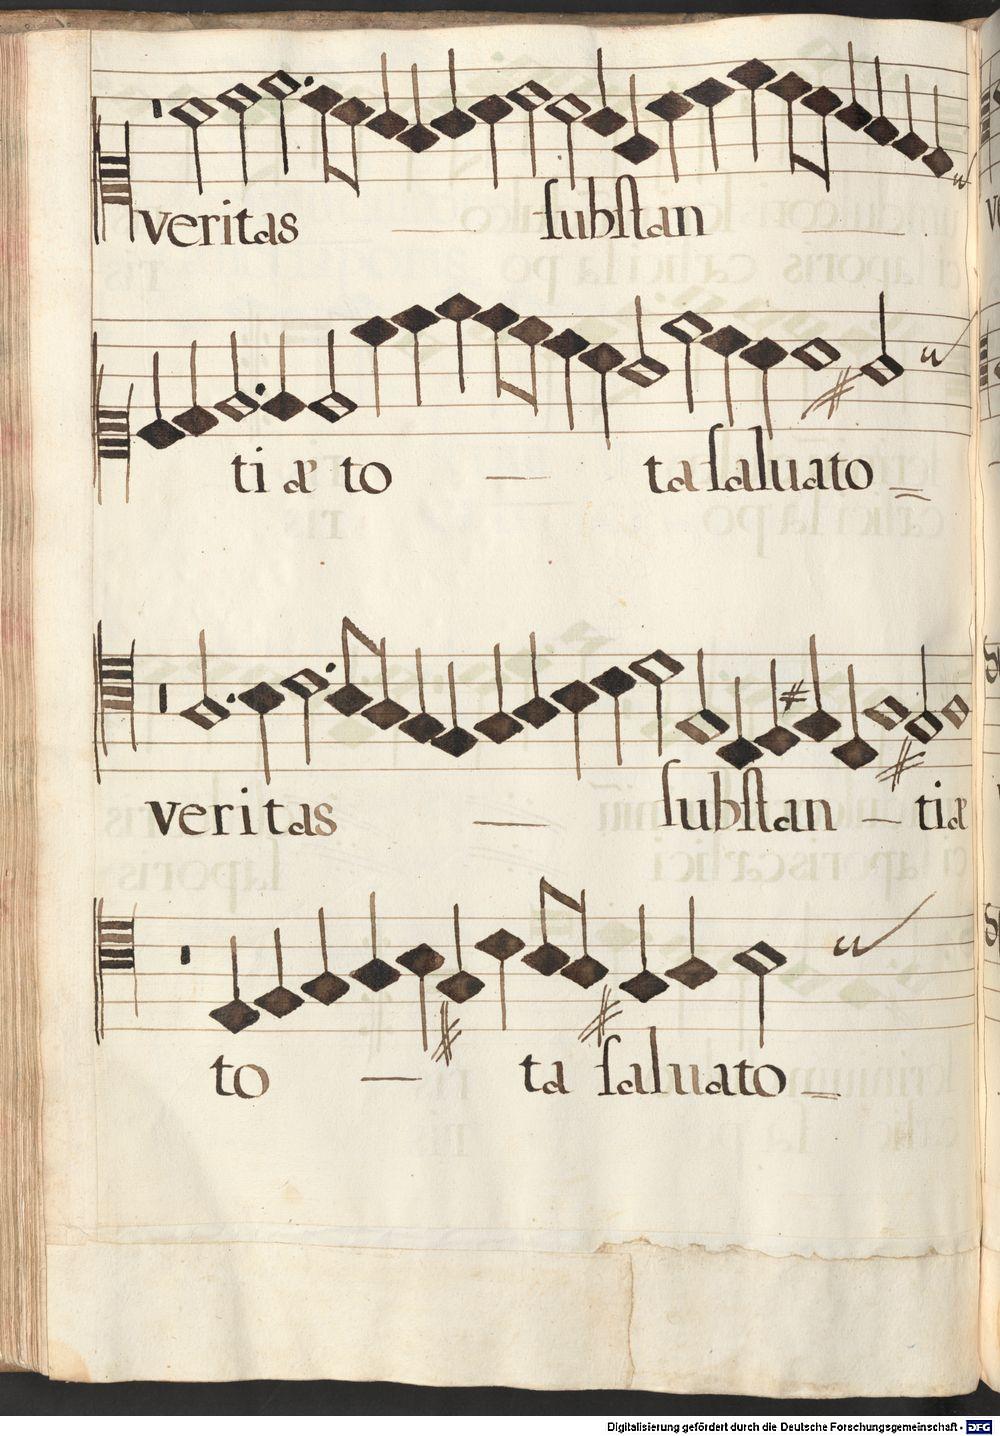 veritas — ſubſtan —
ti æ to — ta ſaluato
veritas — ſubſtan — tiæ
to — ta ſaluato
Digitalisierung gefördert durch die Deutsche Forschungsgemeinschaft - DFG